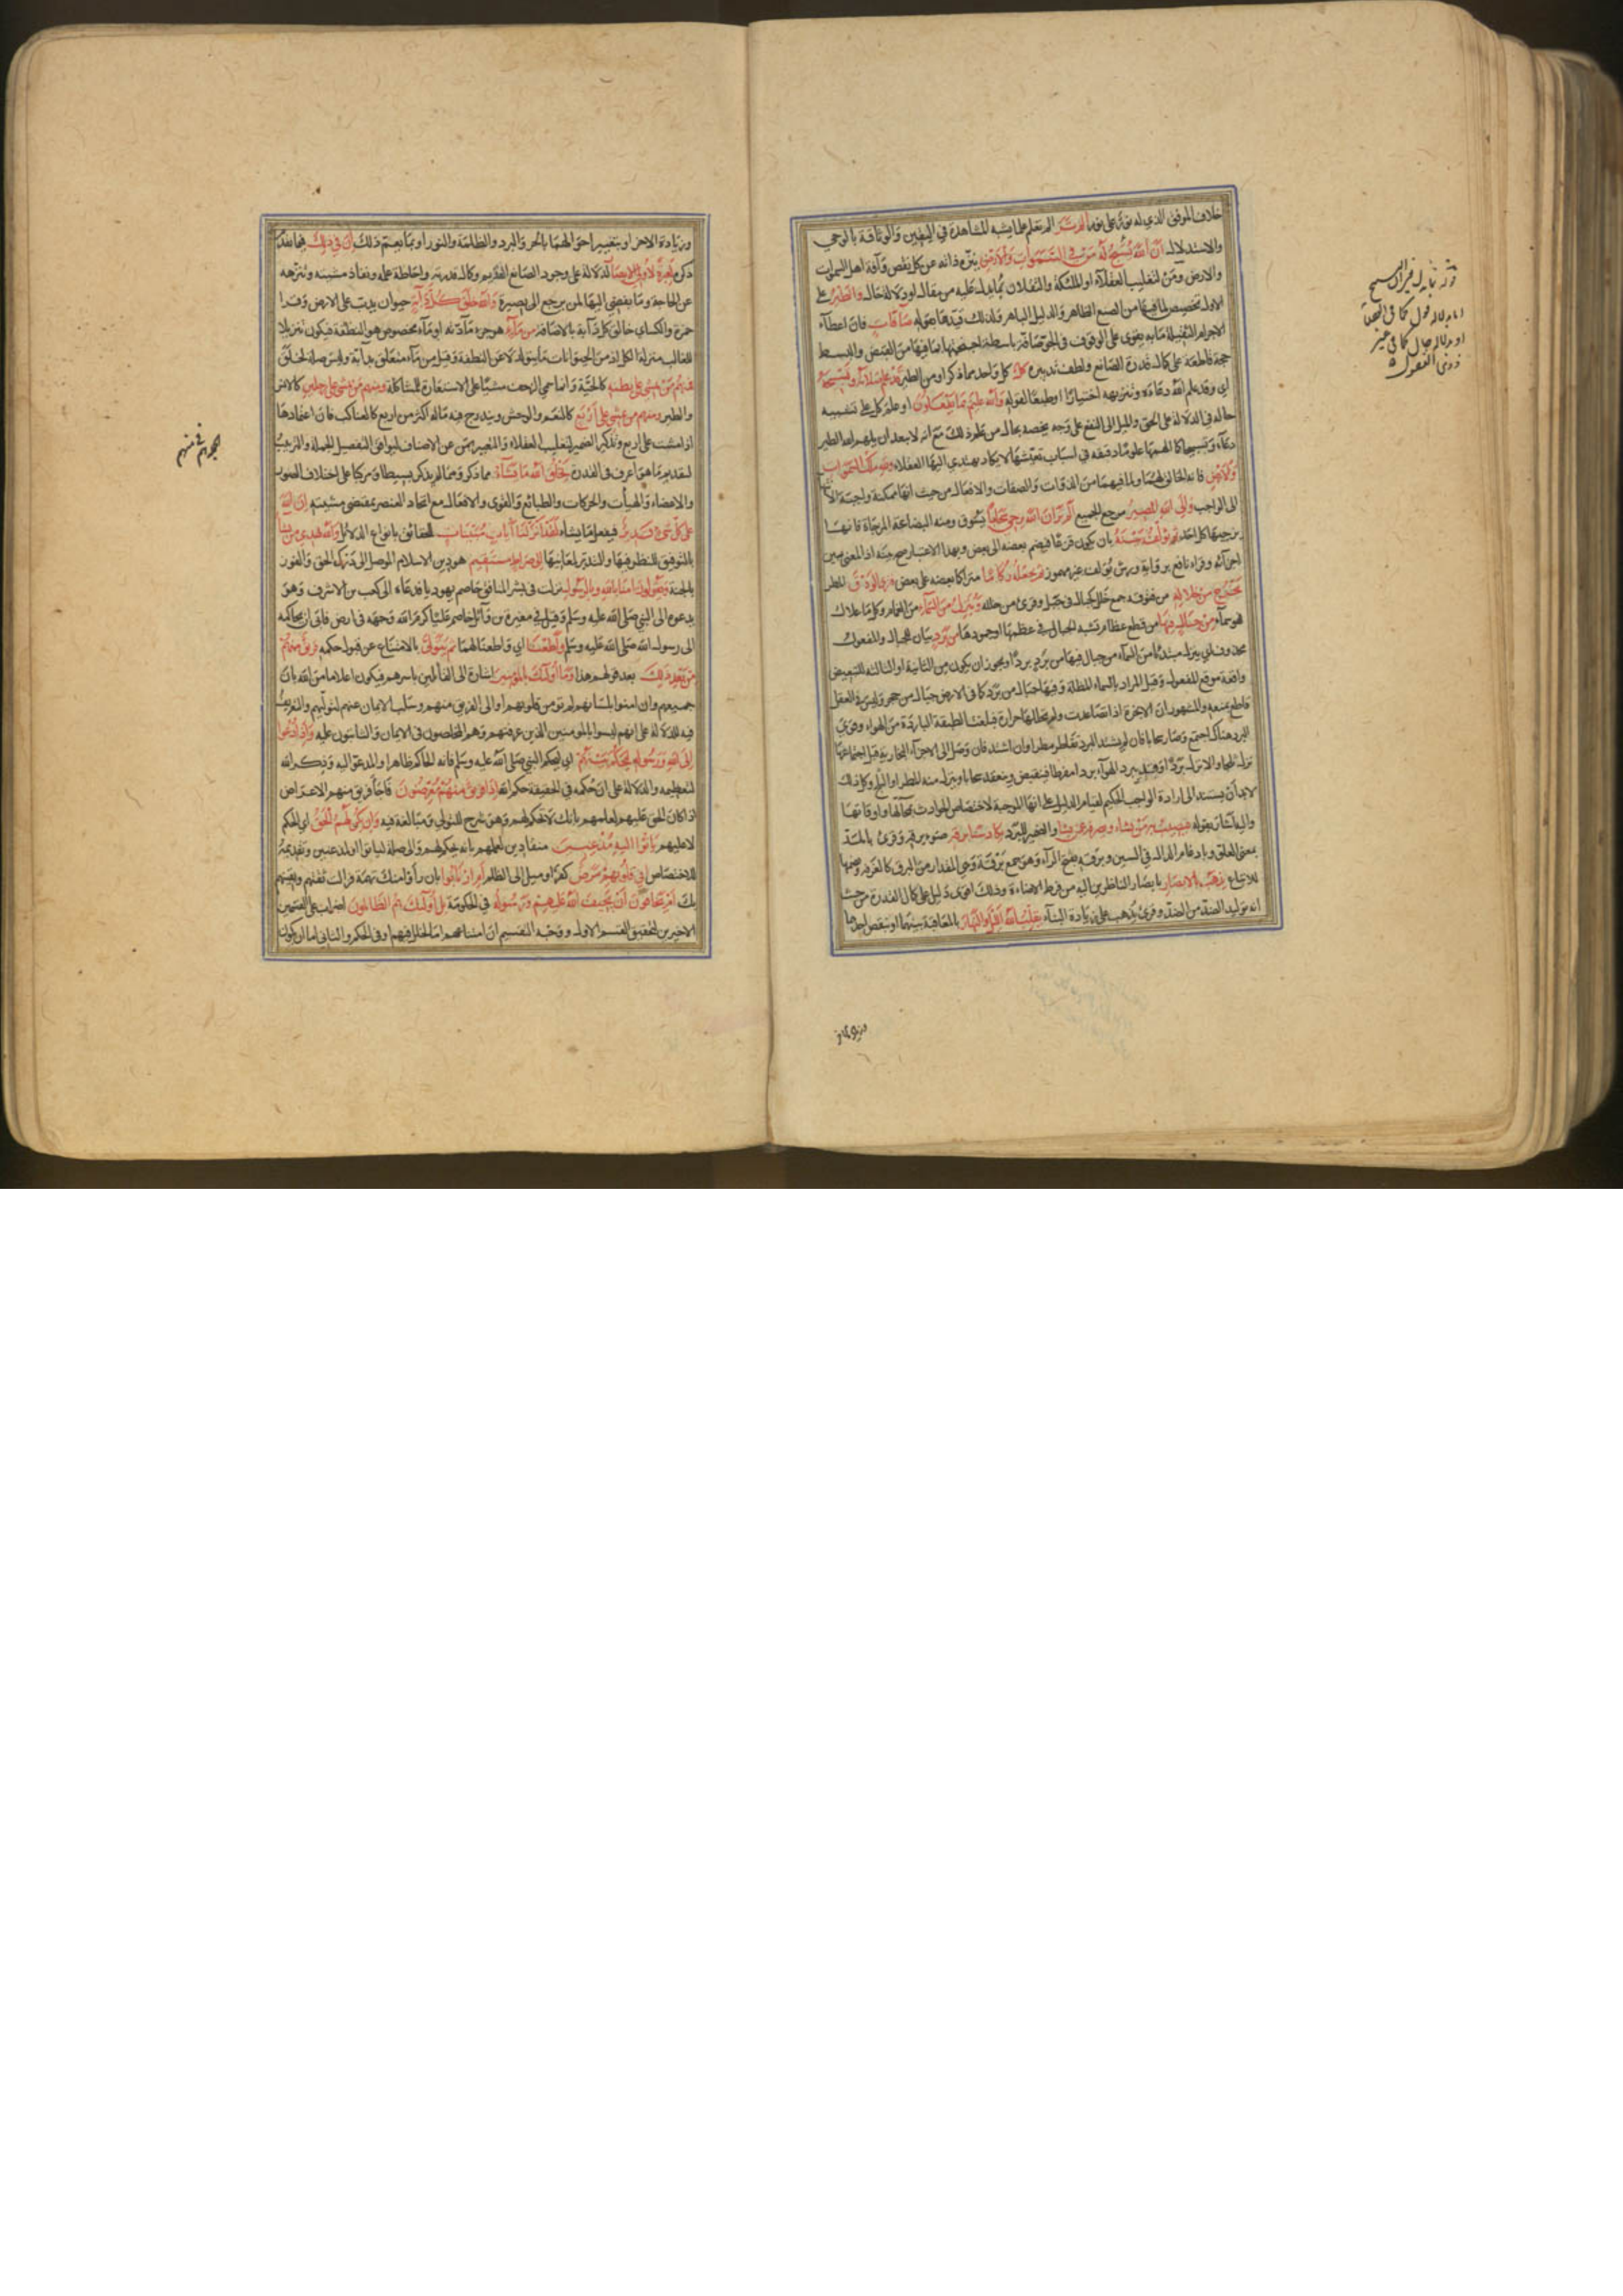 خلاف الموفق الذي له نور على نور ألم تر ألم تعلم علما يشبه المشاهدة في اليقين والوثاقة بالوحي
والاستدلال أن الله يسبح له من في السموات والأرض ينزه ذاته عن كل نقص وآفة اهل السموات
والارض ومن لتغليب العقلاء او الملئكة والثقلان بما يدل عليه من مقال او دلالة حال والطير على
الاول تخصيص لما فيها من الصنع الظاهر والدليل الباهر ولذلك قيدها بقوله صآفات فان اعطآء
الاجرام الثقيلة ما به يقوى على الوقوف في الجو صافة باسطة اجنحتها بما فيها من القبض والبسط
حجة قاطعة على كمال قدرة الصانع ولطف تدبيره كل كل واحد مما ذكر او من الطير قد علم صلاته وتسبيحه
اي وقد علم الله دعاءه وتنزيهه اختيارا او طبعا لقوله والله عليم بما يفعلون او علم كل على تشبيه
حاله في الدلالة على الحق والميل الى النفع على وجه يخصه بحال من علم ذلك مع انه لا يبعد ان يلهم الله الطير
دعآء وتسبيحا كما الهمها علوما دقيقة في اسباب تعيشها لا يكاد يهتدي اليها العقلاء ولله ملك السموات
والارض فانه الخالق لهما وما فيهما من الذوات والصفات والافعال من حيث انها ممكنة واجبة الانتها
الى الواجب والى الله المصير مرجع الجميع ألم تر أن الله يزجي سحابا يسوق ومنه البضاعة المزجاة فانها
يزجيها كل احد ثم يؤلف بينه بان يكون قزعا فيضم بعضه الى بعض وبهذا الاعتبار صح بينه اذ المعنى بين
اجزائه وقراء نافع برواية ورش يولف غير مهموز ثم يجعله ركاما متراكما بعضه على بعض فترى الودق المطر
يخرج من خلاله من فتوقه جمع خلل كجبال في جبل وقرئ من خلله وينزل من السمآء من الغمام وكل ما علاك
فهو سمآء من جبال فيها من قطع عظام تشبه الجبال في عظمها او جمودها من برد بيان للجبال والمفعول
محذوف اي ينزل مبتدئا من السمآء من جبال فيها من برد بردا ويجوز ان يكون من الثانية او الثالثة للتبعيض
واقعة موقع المفعول وقيل المراد بالسماء المظلة وفيها جبال من برد كما في الارض جبال من حجر وليس في العقل
قاطع يمنعه والمشهور ان الابخرة اذا تصاعدت ولم تحللها حرارة فبلغت الطبقة الباردة من الهواء وقوي
البرد هناك اجتمع وصار سحابا فان لم يشتد البرد تقاطر مطرا وان اشتد فان وصل الى الاجزآء البخارية قبل اجتماعها
نزل ثلجا والا نزل بردا وقد يبرد الهوآء بردا مفرطا فينقبض وينعقد سحابا وينزل منه المطر او الثلج وكل ذلك
لابد أن يستند الى ارادة الواجب الحكيم لقيام الدليل على انها الموجبة لاختصاص الحوادث بمحالها واوقاتها
واليه اشار بقوله فيصيب به من يشاء ويصرفه عن من يشا والضمير للبرد يكاد سنا برقه ضوء برقه وقرئ بالمد
بمعنى العلو وبادغام الدال في السين وبرقه بفتح الرآء وهو جمع برقة وهي المقدار من البرق كالغرفة وبضمها
للاتباع يذهب بالابصار بابصار الناظرين اليه من فرط الاضاءة وذلك اقوى دليل على كمال القدرة من حيث
انه توليد الضد من الضد وقرئ يذهب على زيادة البآء يقلب الله الليل والنهار بالمعاقبة بينهما او بنقص احدهما
وزيادة
وزيادة الاخر او بتغيير احوالهما بالحر والبرد والظلمة والنور او بما يعم ذلك ان في ذلك فيما تقدم
ذكره لعبرة لأولي الابصار لدلالة على وجود الصانع القديم وكمال قدرته واحاطة علمه ونفاذ مشيته وتنزهه
عن الحاجة وما يفضي اليها لمن يرجع الى بصيرة والله خلق كل دآبة حيوان يدب على الارض وقرا
حمزة والكساي خالق كل دآبة بالاضافة من مآء هو جزء مآدته او مآء مخصوص هو النطفة فيكون تنزيلا
للغالب منزلة الكل اذ من الحيوانات ما يتولد لا عن النطفة وقيل من مآء متعلق بدآبة وليس صلة لخلق
فمنهم من يمشي على بطنه كالحية وانما سمي الزحف مشيا على الاستعارة للمشاكلة ومنهم من يمشي على رجلين كالانس
والطير ومنهم من يمشي على أربع كالنعم والوحش ويندرج فيه ماله اكثر من اربع كالعناكب فان اعتمادها
اذا مشت على اربع وتذكير الضمير لتغليب العقلاء والتعبير بمن عن الاصناف ليوافق التفصيل الجملة والترتيب
لتقديم ما هو اعرف في القدرة يخلق الله ما يشآء مما ذكر ومما لم يذكر بسيطا ومركبا على اختلاف الصور
والاعضاء والهيأت والحركات والطبائع والقوى والافعال مع اتحاد العنصر بمقتضى مشيته ان الله
على كل شئ قدير فيفعل ما يشاء لقد أنزلنا آيات مبينات للحقائق بانواع الدلائل والله يهدي من يشا
بالتوفيق للنظر فيها والتدبر لمعانيها الى صراط مستقيم هو دين الاسلام الموصل الى درك الحق والفوز
بالجنة ويقولون امنا بالله وبالرسول نزلت في بشر المنافق خاصم يهوديا فدعاه الى كعب بن الاشرف وهو
يدعوه الى النبي صلى الله عليه وسلم وقيل في مغيرة بن وآئل خاصم عليا كرم الله وجهه في ارض فابى ان يحاكمه
الى رسول الله صلى الله عليه وسلم وأطعنا اي واطعنا لهما ثم يتولى بالامتناع عن قبول حكمه فريق منهم
من بعد ذلك بعد قولهم هذا وما أولئك بالمؤمنين اشارة الى القآئلين باسرهم فيكون اعلاما من الله بان
جميعهم وان امنوا بلسانهم لم تؤمن قلوبهم او الى الفريق منهم وسلب الايمان عنهم لتوليهم والتعريف
فيه للدلالة على انهم ليسوا بالمؤمنين الذين عرفتهم وهم المخلصون في الايمان والثابتون عليه وإذا دعوا
إلى الله ورسوله ليحكم بينهم اي ليحكم النبي صلى الله عليه وسلم فانه الحاكم ظاهرا والمدعو اليه وذكر الله
لتعظيمه والدلالة على ان حكمه في الحقيقة حكم الله إذا فريق منهم معرضون فاجأ فريق منهم الاعراض
اذا كان الحق عليهم لعلمهم بانك لا تحكم لهم وهو شرح للتولي ومبالغة فيه وإن يكن لهم الحق اي الحكم
لا عليهم يأتوا اليه مذعنين منقادين لعلمهم بانه يحكم لهم والى صلة ليأتوا او لمذعنين وتقديمه
للاختصاص أفي قلوبهم مرض كفر او ميل الى الظلم أم ارتابوا بان رأوا منك تهمة فزالت ثقتهم ويقينهم
بك أم يخافون أن يحيف الله عليهم ورسوله في الحكومة بل أولئك هم الظالمون اضراب على القسمين
الاخيرين لتحقيق القسم الاول ووجه التقسيم ان امتناعهم اما لخلل فيهم او في الحاكم والثاني اما ان يكون